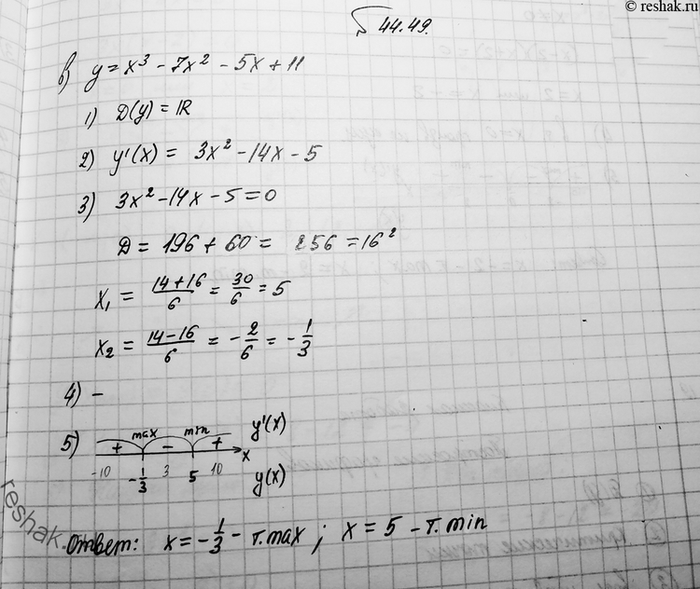 © reshak.ru
№ 44.49.
в) y = x³ - 7x² - 5x + 11
1) D(y) = ℝ
2) y'(x) = 3x² - 14x - 5
3) 3x² - 14x - 5 = 0
D = 196 + 60 = 256 = 16²
x₁ = (14+16)/6 = 30/6 = 5
x₂ = (14-16)/6 = -2/6 = -1/3
4) -
5) + max - min + y'(x)
-10 -1/3 3 5 10 x y(x)
reshak.
Ответ: x = -1/3 - т. max ; x = 5 - т. min